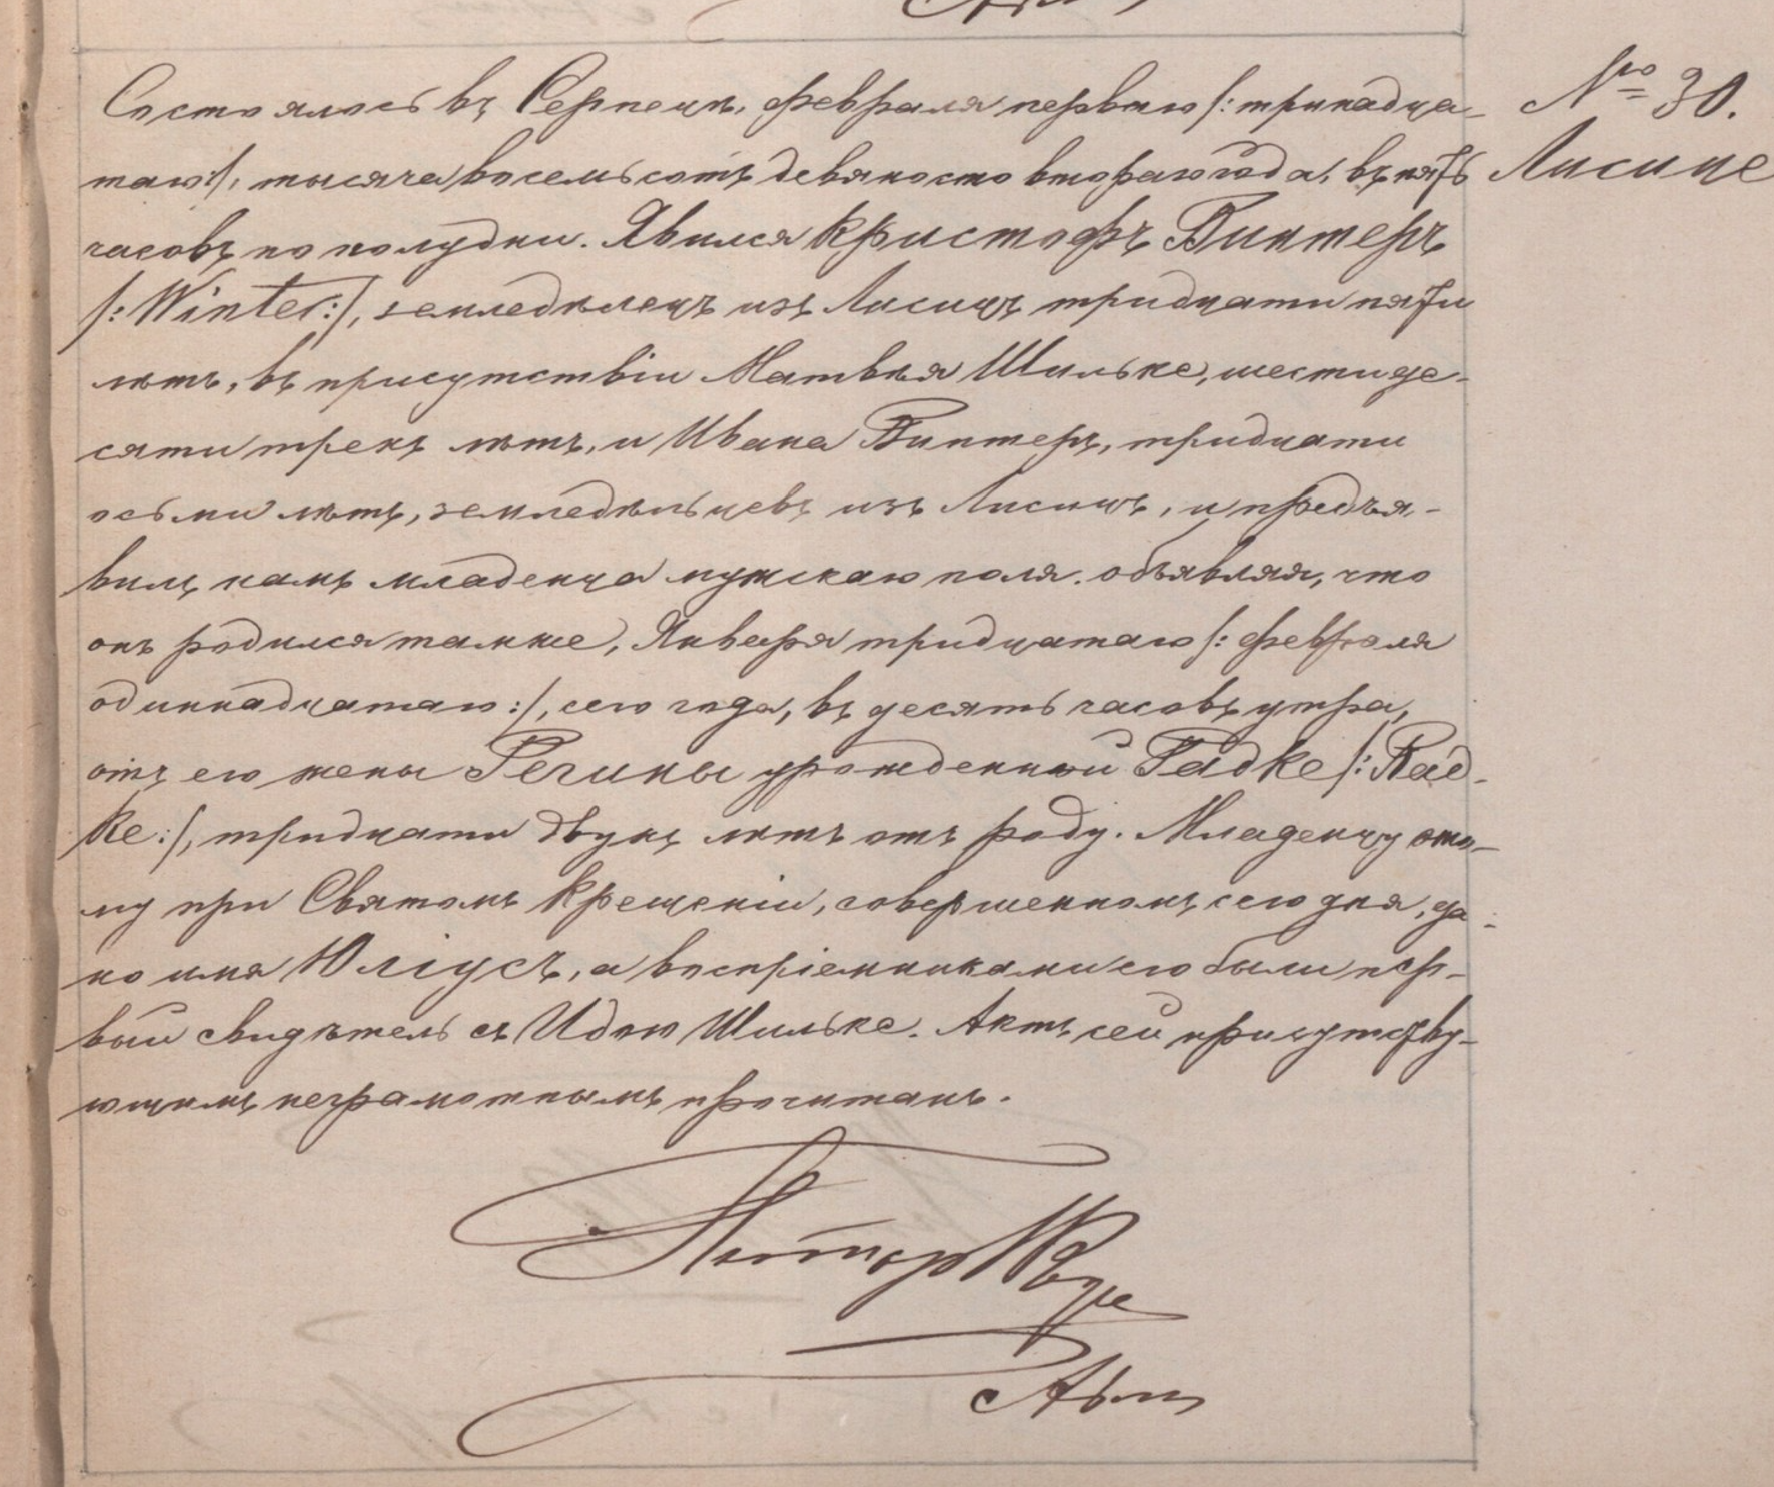 № 30.
Лисице
Состоялось въ Серпецѣ, февраля перваго /: тринадца-
таго :/, тысяча восемьсотъ девяносто втораго года, въ пять
часовъ по полудни. Явился Кристофъ Винтеръ
/: Winter :/, земледѣлецъ изъ Лисицъ тридцати пяти
лѣтъ, въ присутствіи Матвѣя Шильке, шестиде-
сяти трехъ лѣтъ, и Ивана Винтеръ, тридцати
осьми лѣтъ, земледѣльцевъ изъ Лисицъ, и предъя-
вилъ намъ младенца мужскаго пола. объявляя, что
онъ родился тамже, Января тридцатаго /: февраля
одиннадцатаго :/, сего года, въ десять часовъ утра,
отъ его жены Регины урожденной Радке /: Rad-
ke :/, тридцати двухъ лѣтъ отъ роду. Младенцу это-
му при Святомъ Крещеніи, совершенномъ сего дня, да-
но имя Юліусъ, а воспріемниками его были пер-
вый свидѣтель съ Идою Шильке. Актъ сей присутству-
ющимъ неграмотнымъ прочитанъ.
Пасторъ